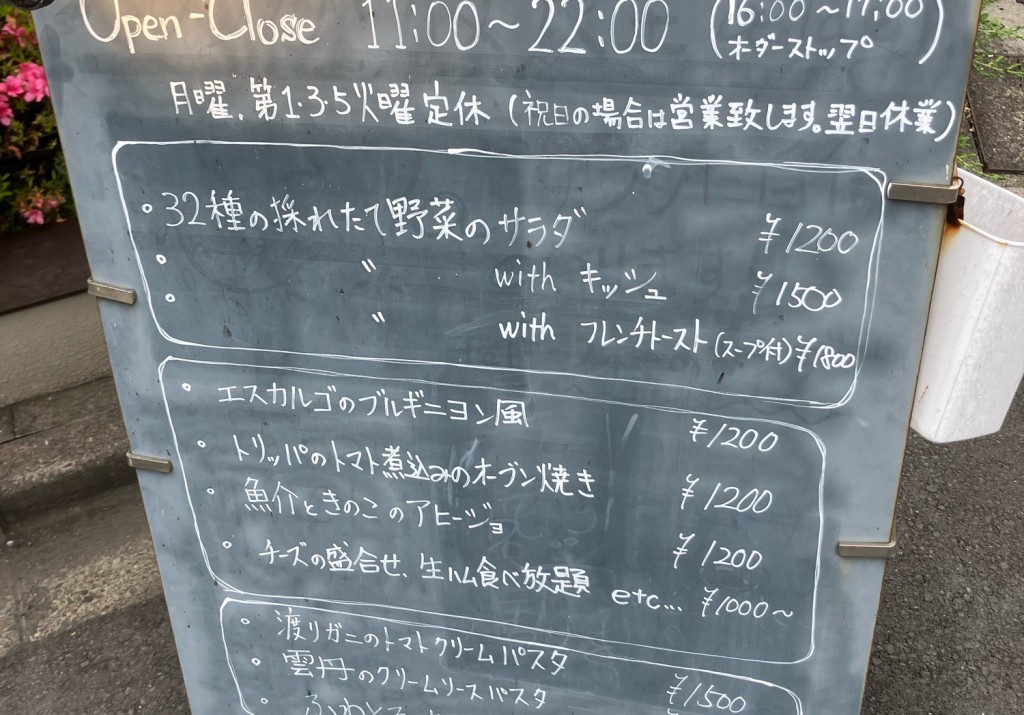 Open-Close 11:00～22:00 (16:00～17:00
オーダーストップ)
月曜、第1・3・5火曜定休(祝日の場合は営業致します。翌日休業)
◦32種の採れたて野菜のサラダ ¥1200
◦ 〃 with キッシュ ¥1500
◦ 〃 with フレンチトースト(スープ付) ¥1800
◦ エスカルゴのブルギニヨン風 ¥1200
◦ トリッパのトマト煮込みのオーブン焼き ¥1200
◦ 魚介ときのこのアヒージョ ¥1200
◦ チーズの盛合せ、生ハム食べ放題 etc... ¥1000～
◦ 渡りガニのトマトクリームパスタ ¥1500
◦ 雲丹のクリームソースパスタ